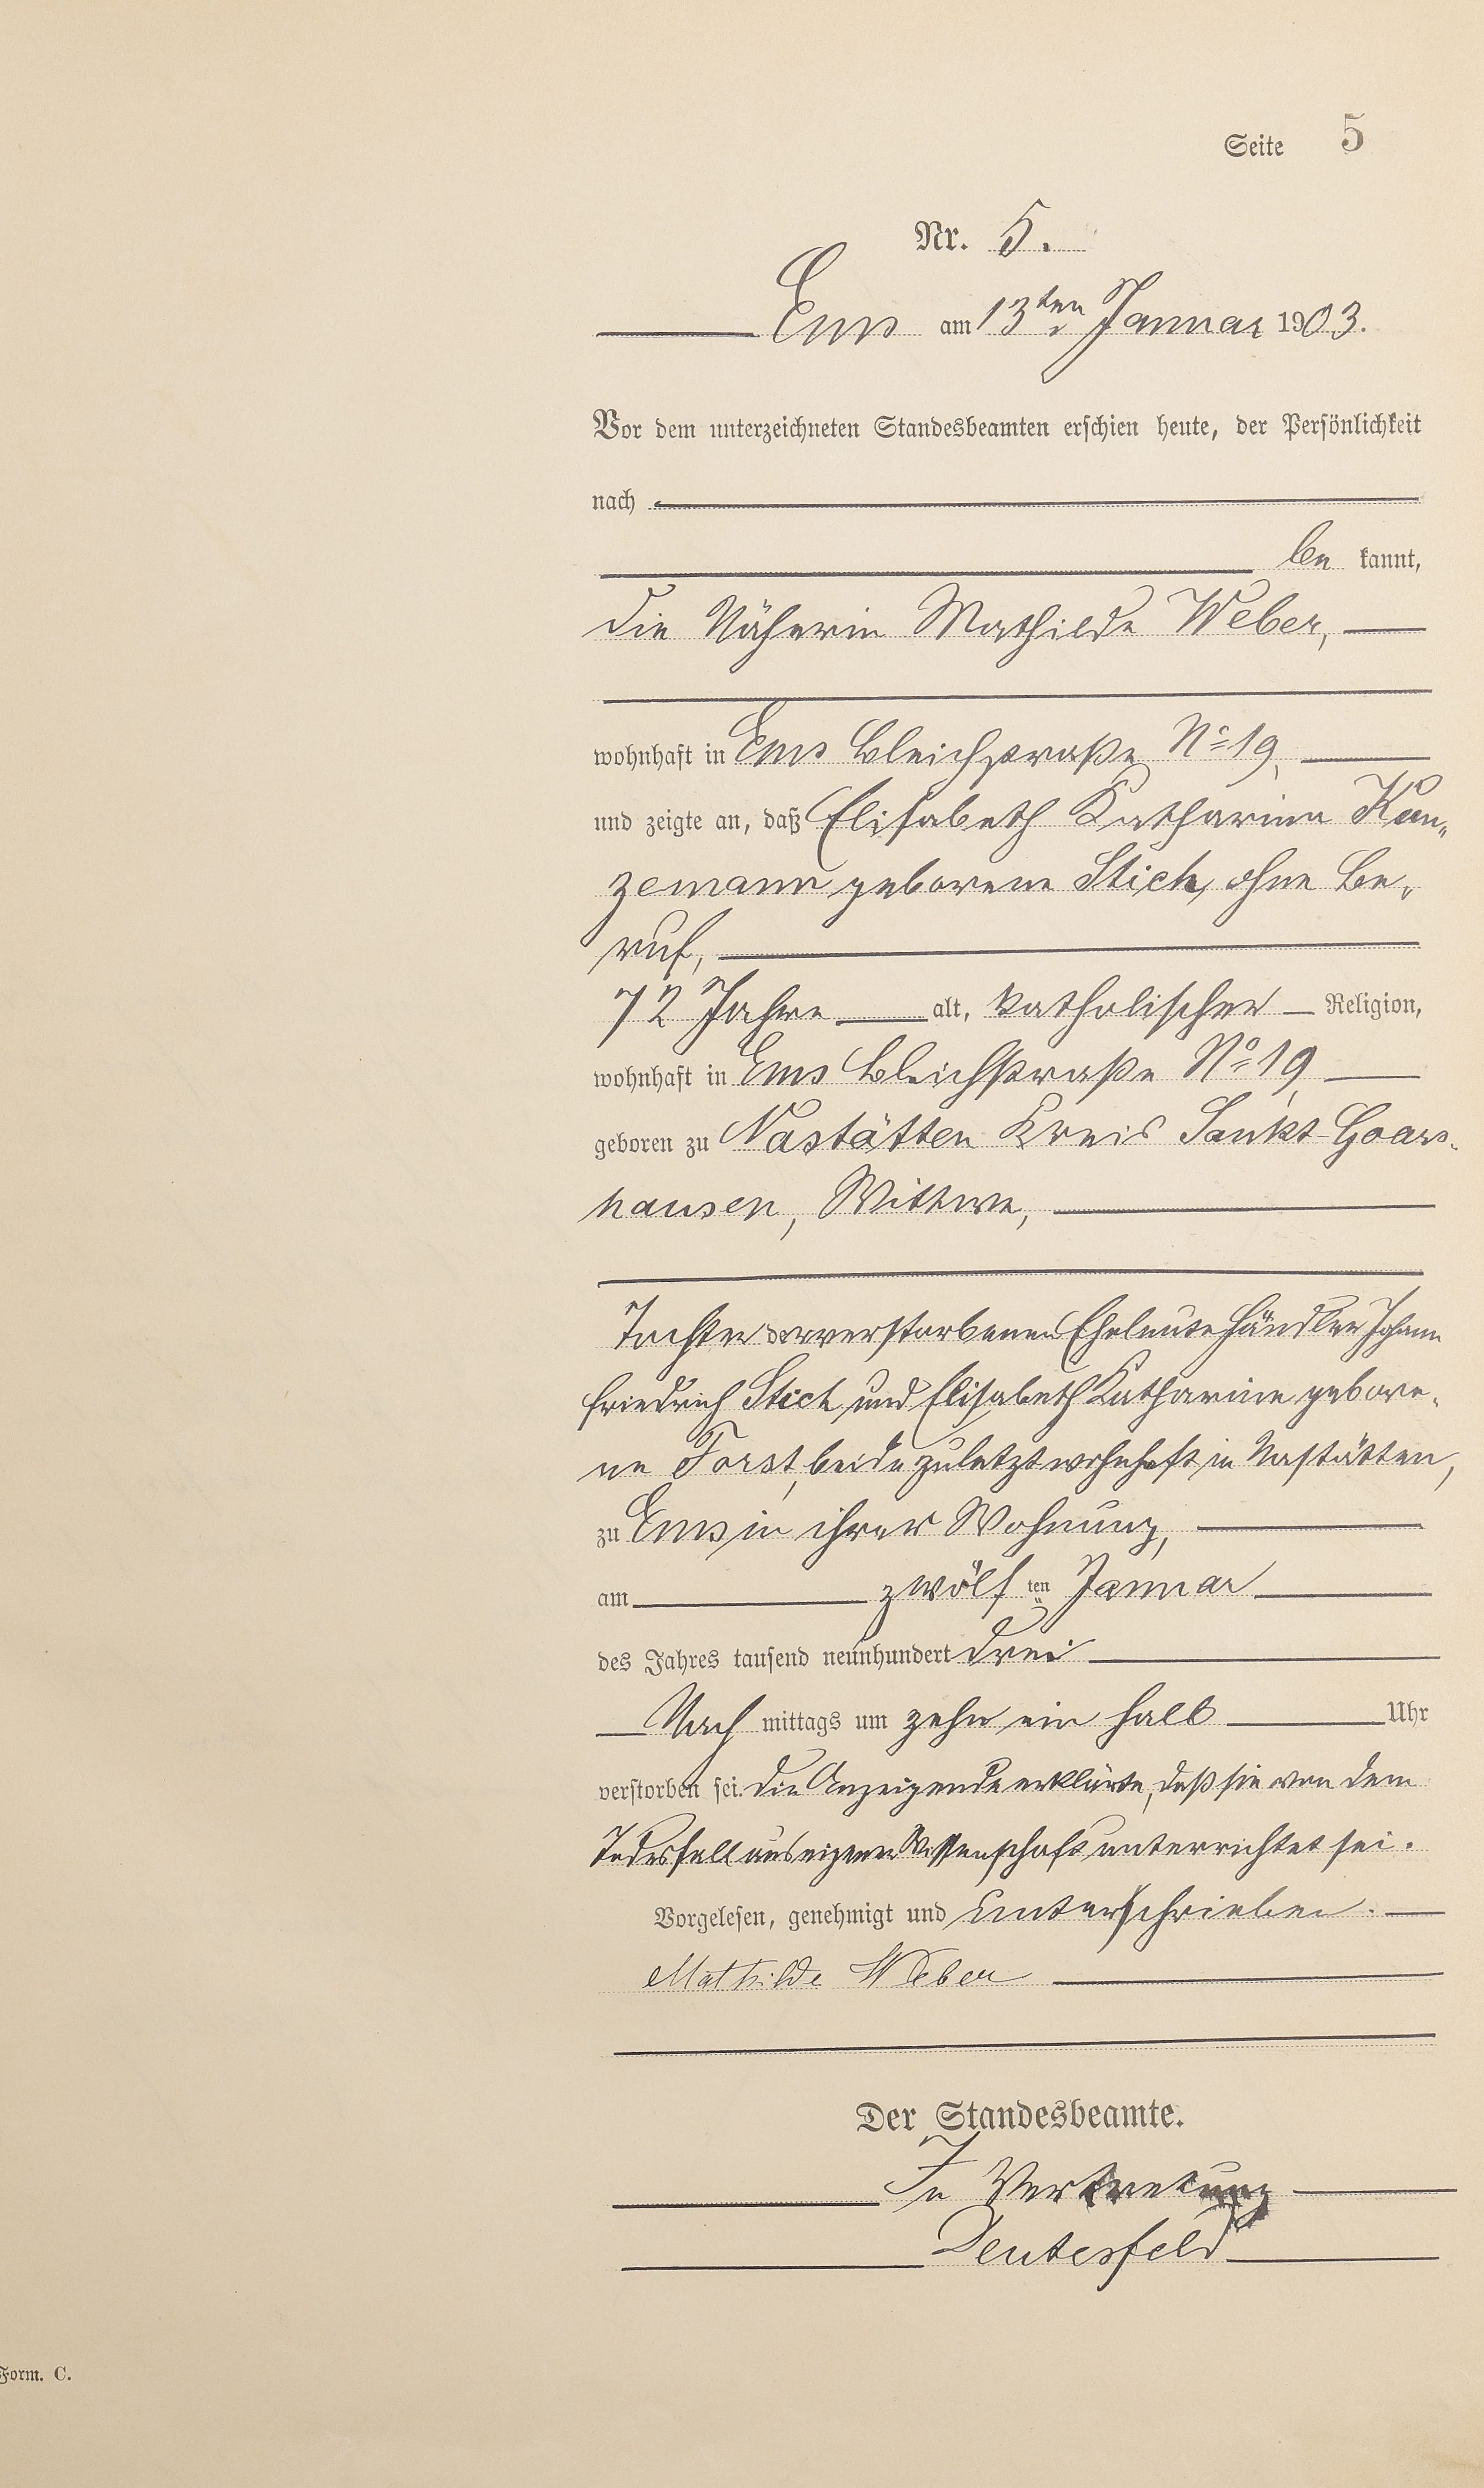 Seite 5
Nr. 5.
Ems am 13ten Januar 1903.
Vor dem unterzeichneten Standesbeamten erschien heute, der Persönlichkeit
nach
be kannt,
die Näherin Mathilde Weber,
wohnhaft in Ems Bleichstraße No 19,
und zeigte an, daß Elisabeth Katharina Kun„
zemann geborene Stich, ohne Be„
ruf,
72 Jahre alt, katholischer Religion,
wohnhaft in Ems Bleichstraße No 19,
geboren zu Nastätten Kreis Sankt-Goars-
hausen, Wittwe,
Tochter der verstorbenen Eheleute Händler Johann
Friedrich Stich und Elisabeth Katharine gebore-
ne Forst, beide zuletzt wohnhaft in Nastätten,
zu Ems in ihrer Wohnung,
am zwölf ten Januar
des Jahres tausend neunhundert drei
Nach mittags um zehn ein halb Uhr
verstorben sei. Die Anzeigende erklärte, daß sie von dem
Todesfall aus eigener Wissenschaft unterrichtet sei.
Vorgelesen, genehmigt und unterschrieben.
Mathilde Weber
Der Standesbeamte.
In Vertretung
Deutesfeld
Form. C.